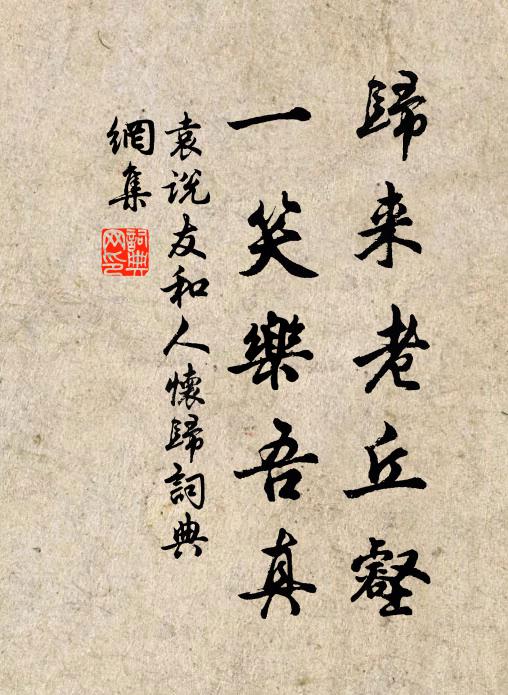 歸来老丘壑
一笑樂吾真
袁説友和人懷歸詞典
網集
詞典網印